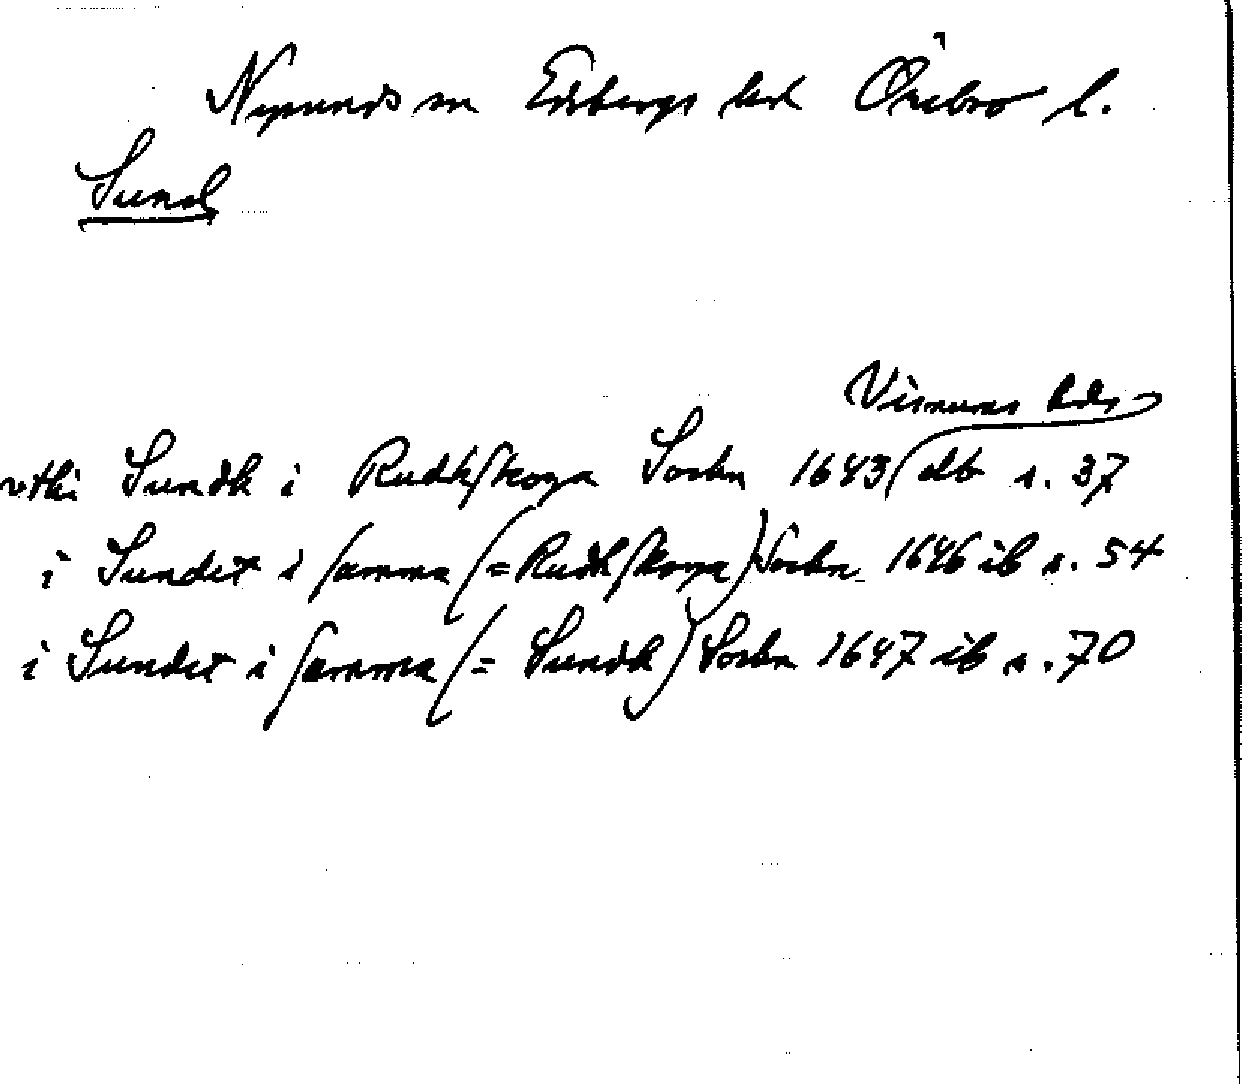 Nysunds sn Edsbergs hd Örebro l.
Sund
Visnums hds
vthi Sundh i Rudhskoga Sochn 1643 db s. 37
i Sundet i samma (= Rudhskoga) Sochn 1646 ib s. 54
i Sundet i samma (= Sundh) Sochn 1647 ib s. 70